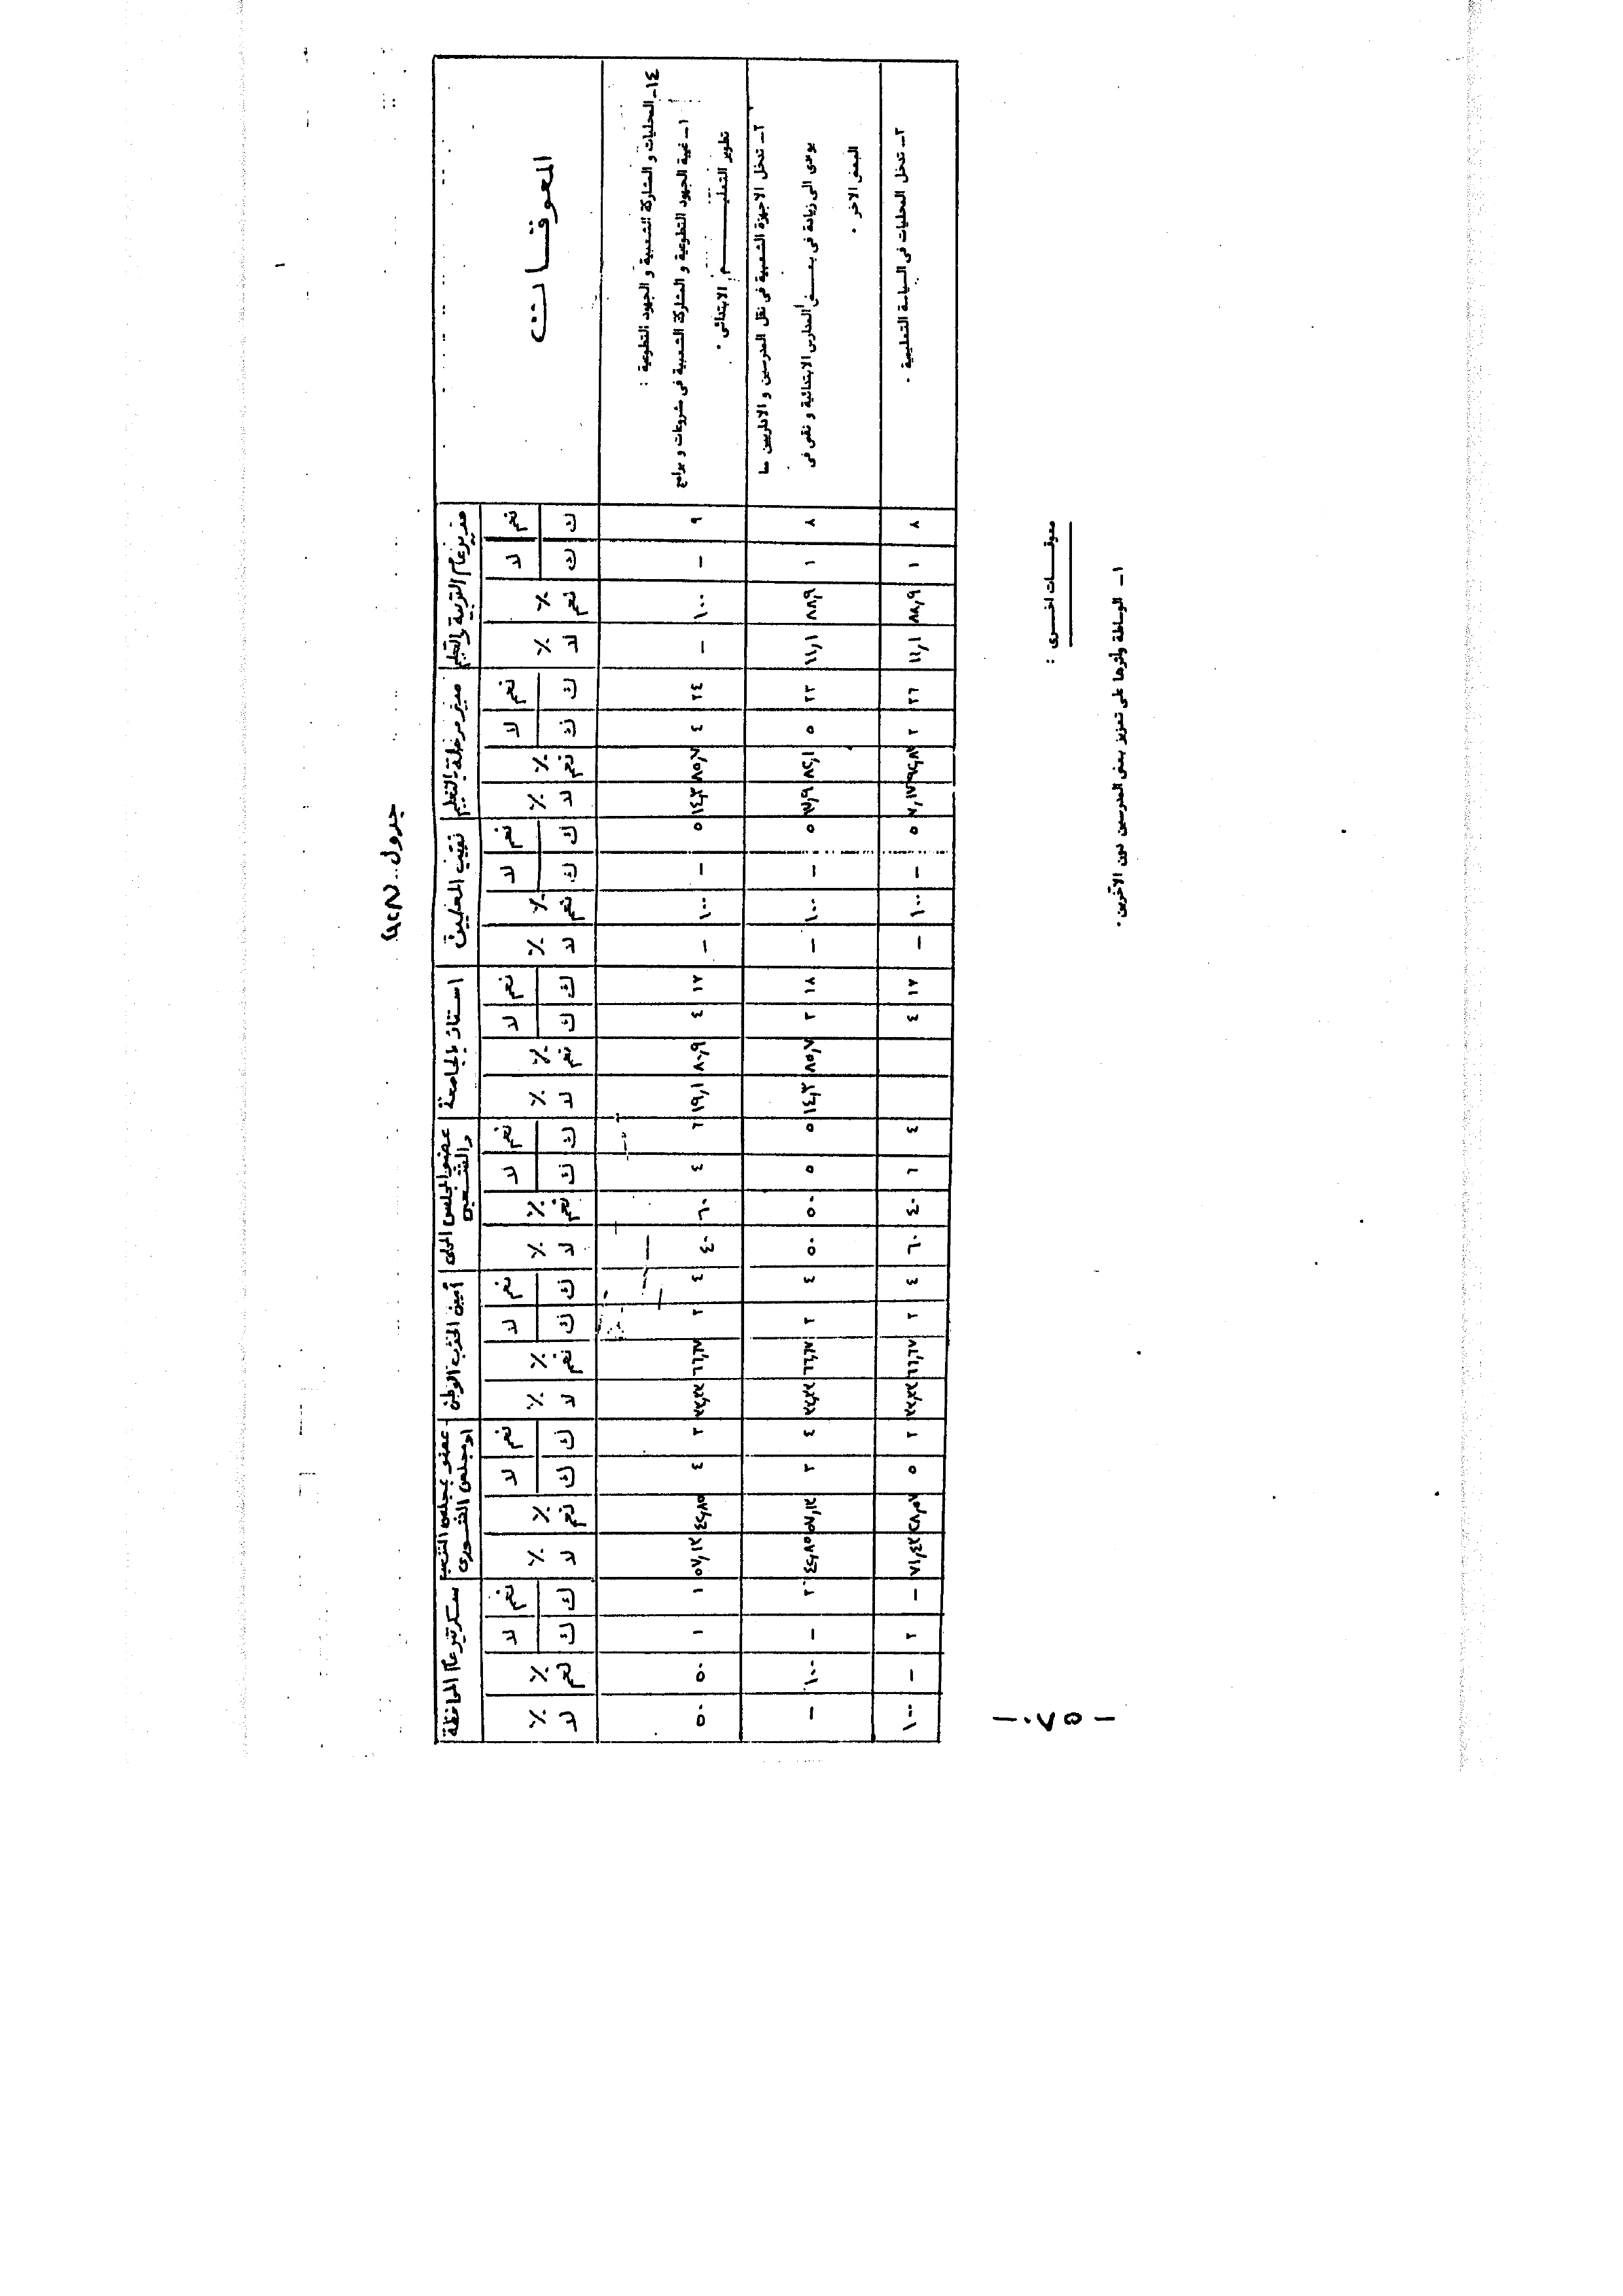 المعوقــات
مدير عام التربية والتعليم
مدير مرحلة بالتعليم
نقيب المعلمين
استاذ بالجامعة
عضو المجلس المحلى والشعبى
أمين الحزب الوطنى
عضو مجلس الشعب او مجلس الشورى
سكرتير عام المحافظة
نعم لا نعم ٪ لا ٪ نعم لا نعم ٪ لا ٪ نعم لا نعم ٪ لا ٪ نعم لا نعم ٪ لا ٪ نعم لا نعم ٪ لا ٪ نعم لا نعم ٪ لا ٪ نعم لا نعم ٪ لا ٪ نعم لا نعم ٪ لا ٪
ك ك ك ك ك ك ك ك ك ك ك ك ك ك ك ك
١٤ـ المحليات و المشاركة الشعبية و الجهود التطوعية :
١ـ غيبة الجهود التطوعية و المشاركة الشعبية فى مشروعات و برامج
تطوير التعليـــــم الابتدائى .
٩ – ١٠٠ – ٢٤ ٤ ٨٥,٧ ١٤,٣ ٥ – ١٠٠ – ١٧ ٤ ٨٠,٩ ١٩,١ ٦ ٤ ٦٠ ٤٠ ٤ ٢ ٦٦,٦٧ ٣٣,٣٣ ٣ ٤ ٤٢,٨٥ ٥٧,١٣ ١ ١ ٥٠ ٥٠
٢ـ تدخل الاجهزة الشعبية فى نقل المدرسين و الاداريين مما
يوءدى الى زيادة فى بعــض المدارس الابتدائية و نقص فى
البعض الاخر .
٨ ١ ٨٨,٩ ١١,١ ٢٣ ٥ ٨٢,١ ١٧,٩ ٥ – ١٠٠ – ١٨ ٣ ٨٥,٧ ١٤,٣ ٥ ٥ ٥٠ ٥٠ ٤ ٢ ٦٦,٦٧ ٣٣,٣٣ ٤ ٣ ٥٧,١٣ ٤٢,٨٥ ٢ – ١٠٠ –
٣ـ تدخل المحليات فى السياسة التعليمية .
٨ ١ ٨٨,٩ ١١,١ ٢٦ ٢ ٥ – ١٠٠ – ١٧ ٤ ٤ ٦ ٤٠ ٦٠ ٤ ٢ ٦٦,٦٧ ٣٣,٣٣ ٢ ٥ ٢٨,٥٧ ٧١,٤٣ – ٢ – ١٠٠
معوقــــات اخــرى :
١ـ الوساطة وأثرها على تعزيز بعض المدرسين دون الآخرين .